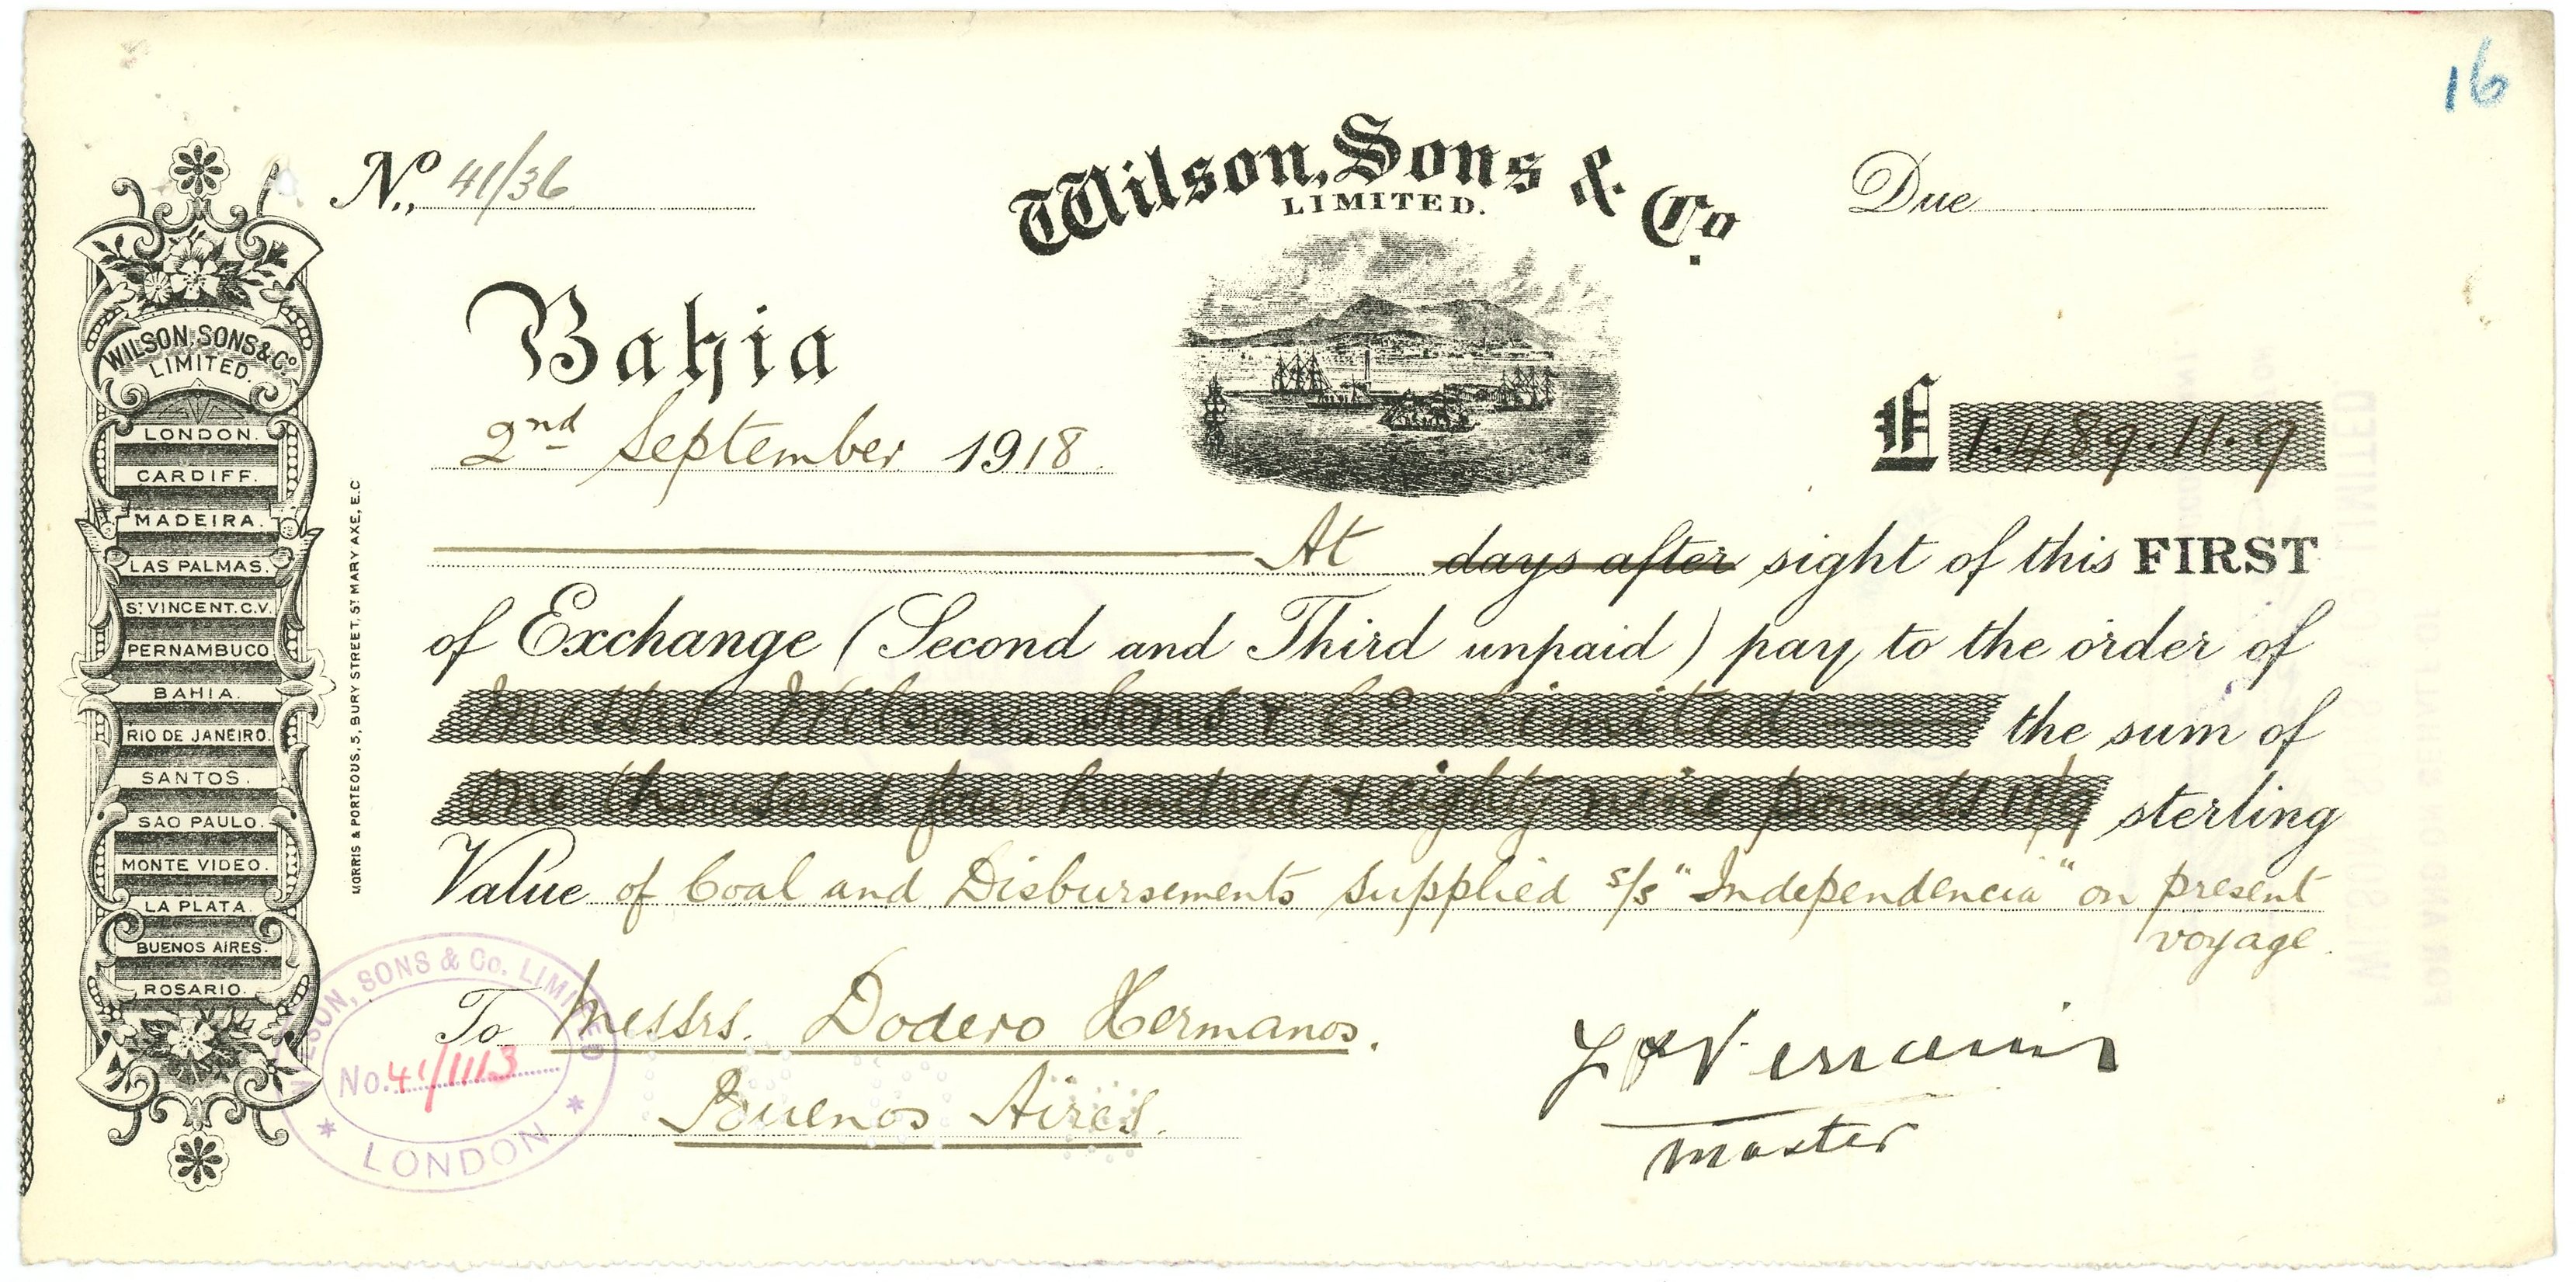 16
No. 41/36
Wilson, Sons & Co.
LIMITED.
Due
Bahia
2nd September 1918
£ 1.489.11.9
At days after sight of this FIRST
of Exchange (Second and Third unpaid) pay to the order of
Messrs. Wilson, Sons & Co Limited the sum of
One thousand four hundred & eighty nine pounds 11/9 sterling
Value of Coal and Disbursements supplied s/s "Independencia" on present
voyage.
To Messrs. Dodero Hermanos.
Buenos Aires.
master
WILSON, SONS & Co.
LIMITED.
LONDON.
CARDIFF.
MADEIRA.
LAS PALMAS.
ST VINCENT. C.V.
PERNAMBUCO
BAHIA.
RIO DE JANEIRO.
SANTOS.
SAO PAULO.
MONTE VIDEO.
LA PLATA.
BUENOS AIRES.
ROSARIO.
MORRIS & PORTEOUS, 5, BURY STREET, ST MARY AXE, E.C
WILSON, SONS & Co. LIMITED
No. 41/1113
* LONDON *